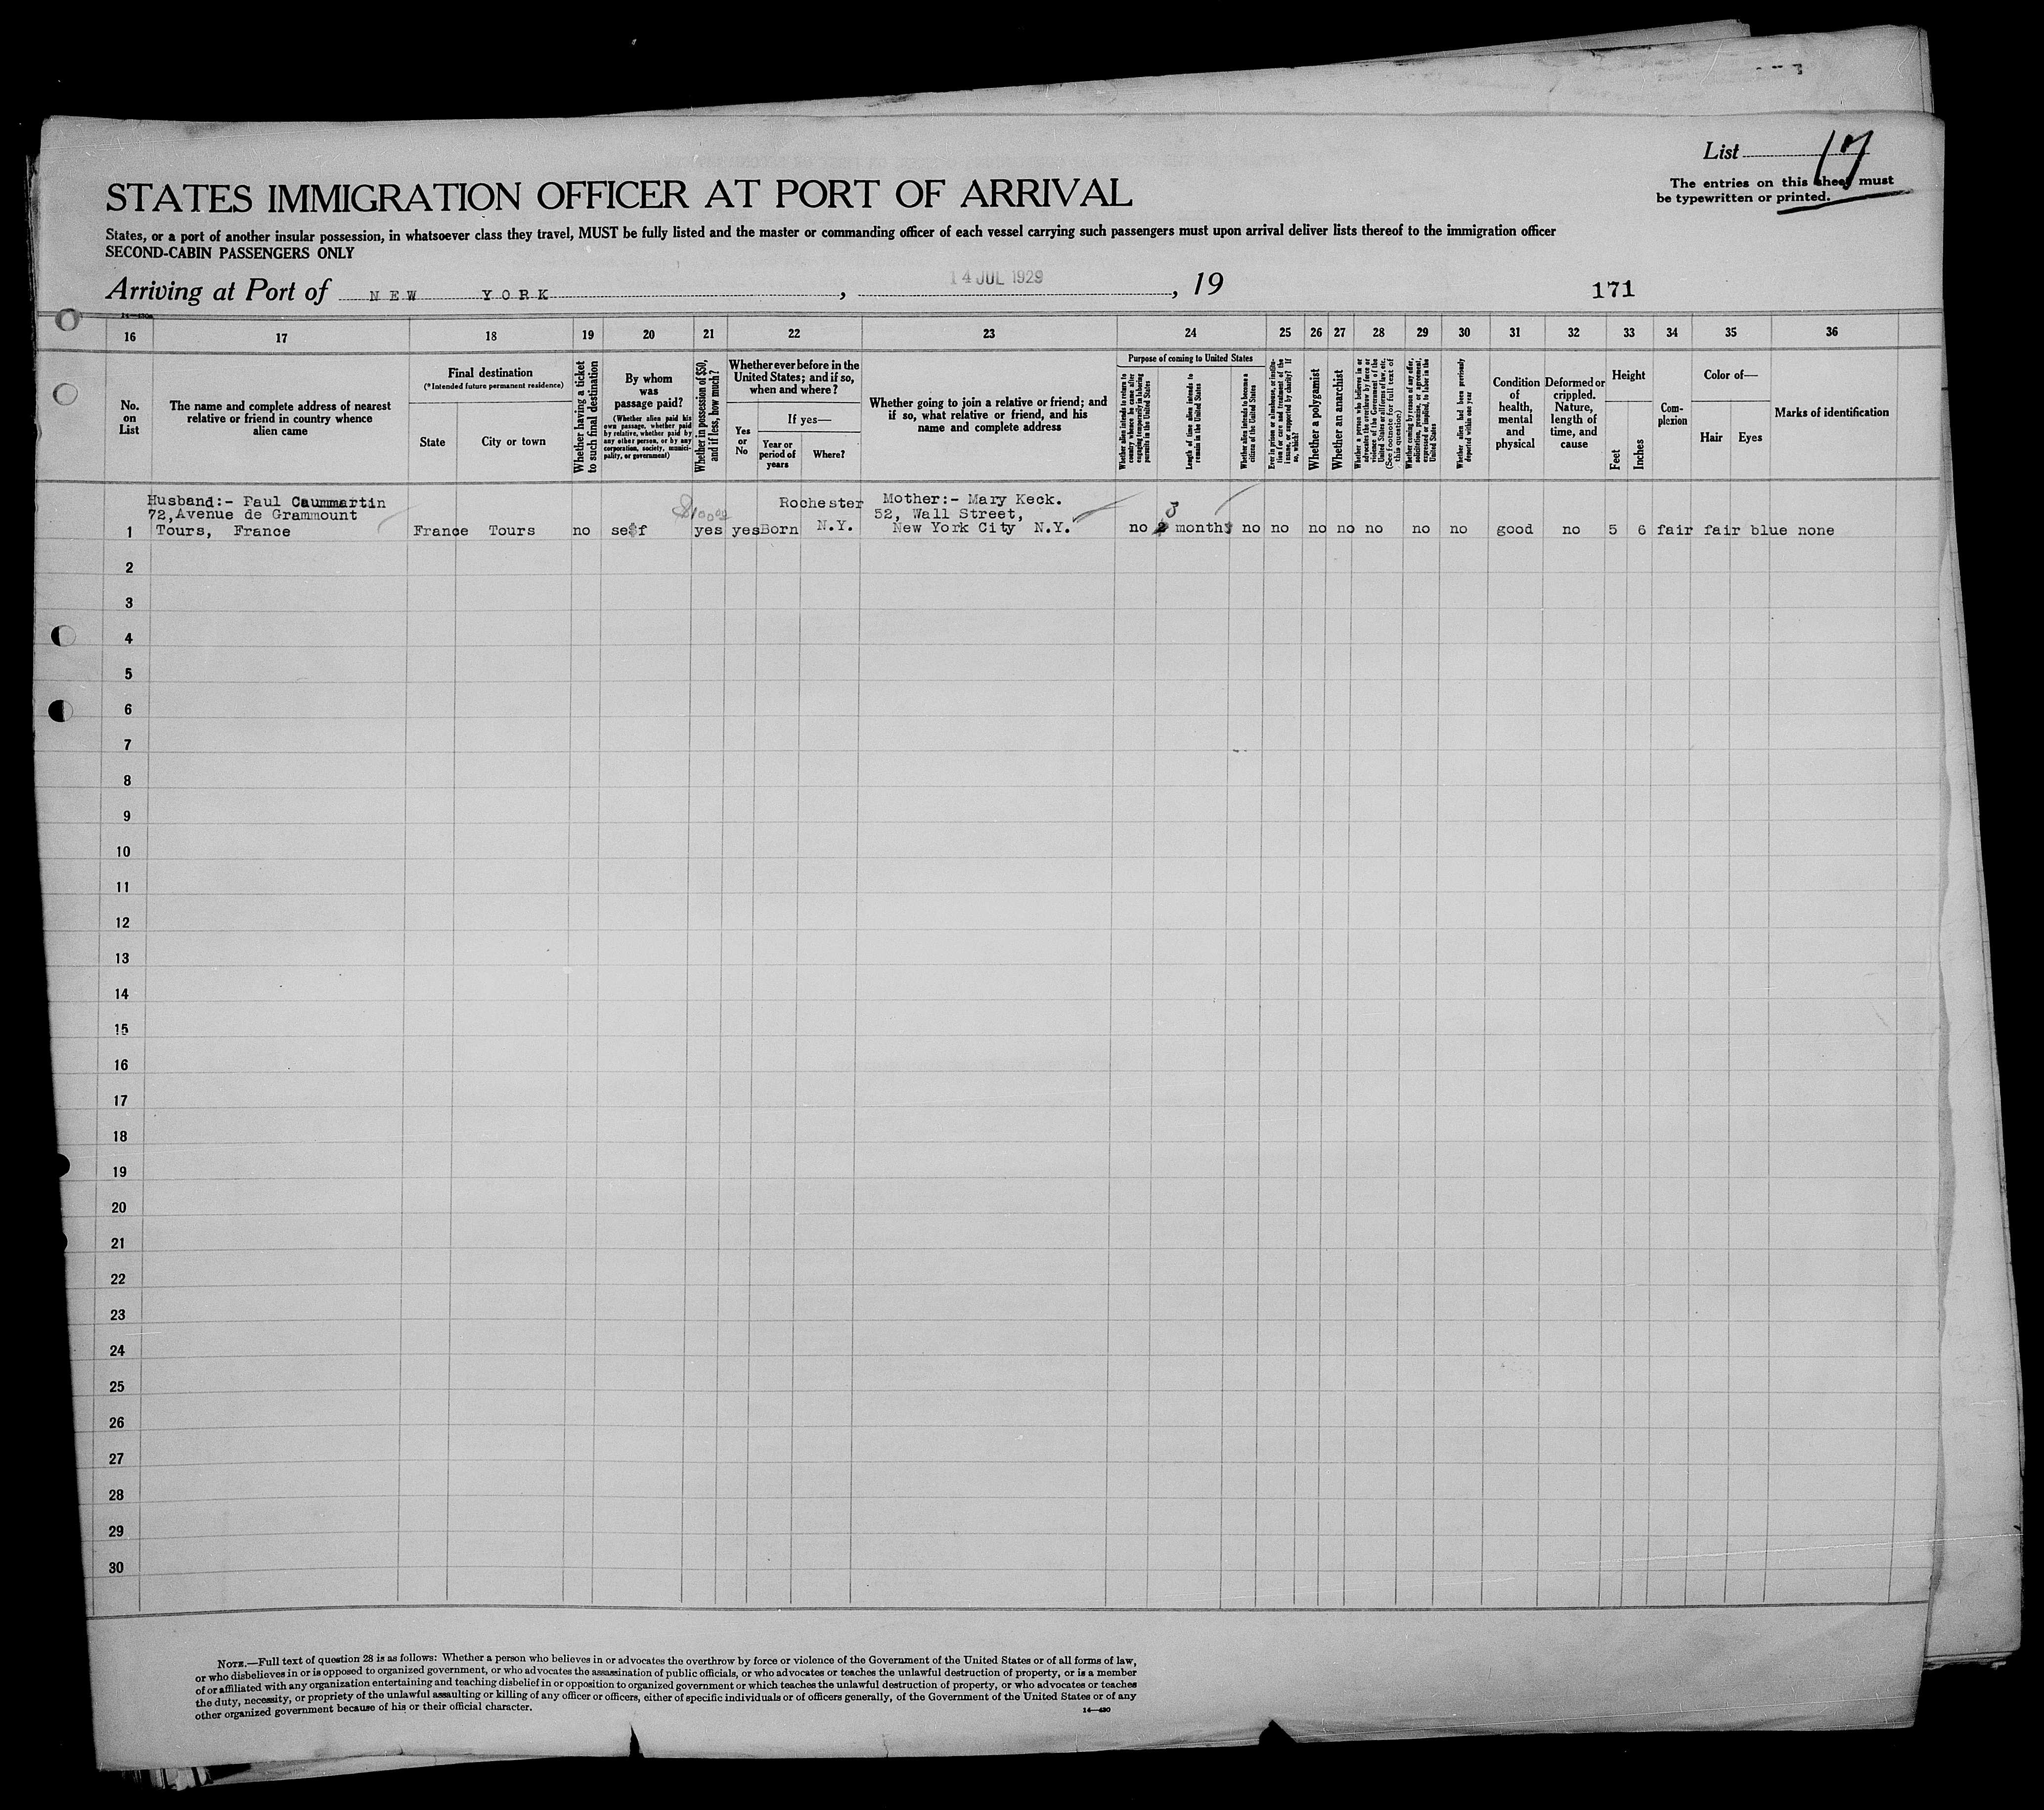 List 17
The entries on this sheet must
be typewritten or printed.
STATES IMMIGRATION OFFICER AT PORT OF ARRIVAL
States, or a port of another insular possession, in whatsoever class they travel, MUST be fully listed and the master or commanding officer of each vessel carrying such passengers must upon arrival deliver lists thereof to the immigration officer
SECOND-CABIN PASSENGERS ONLY
Arriving at Port of NEW YORK, 14 JUL 1929, 19
171
14—430
16 17 18 19 20 21 22 23 24 25 26 27 28 29 30 31 32 33 34 35 36
No. on List
The name and complete address of nearest
relative or friend in country whence
alien came
Final destination
(*Intended future permanent residence)
State
City or town
Whether having a ticket
to such final destination
By whom
was
passage paid?
(Whether alien paid his
own passage, whether paid
by relative, whether paid by
any other person, or by any
corporation, society, munici-
pality, or government)
Whether in possession of $50,
and if less, how much?
Whether ever before in the
United States; and if so,
when and where?
Yes
or
No
If yes—
Year or
period of
years
Where?
Whether going to join a relative or friend; and
if so, what relative or friend, and his
name and complete address
Purpose of coming to United States
Whether alien intends to return to
country whence he came after
engaging temporarily in laboring
pursuits in the United States
Length of time alien intends to
remain in the United States
Whether alien intends to become a
citizen of the United States
Ever in prison or almshouse, or institu-
tion for care and treatment of the
insane, or supported by charity? If
so, which?
Whether a polygamist
Whether an anarchist
Whether a person who believes in or
advocates the overthrow by force or
violence of the Government of the
United States or all forms of law, etc.
(See footnote for full text of
this question)
Whether coming by reason of any offer,
solicitation, promise, or agreement,
expressed or implied, to labor in the
United States
Whether alien had been previously
deported within one year
Condition
of
health,
mental
and
physical
Deformed or
crippled.
Nature,
length of
time, and
cause
Height
Feet
Inches
Com-
plexion
Color of—
Hair
Eyes
Marks of identification
Husband:- Paul Caummartin
72,Avenue de Grammount
Tours, France
1
France Tours no self yes yes Born
Rochester
N.Y.
Mother:- Mary Keck.
52, Wall Street,
New York City N.Y.
3
no 2 months no no no no no no no good no 5 6 fair fair blue none
2
3
4
5
6
7
8
9
10
11
12
13
14
15
16
17
18
19
20
21
22
23
24
25
26
27
28
29
30
NOTE.—Full text of question 28 is as follows: Whether a person who believes in or advocates the overthrow by force or violence of the Government of the United States or of all forms of law,
or who disbelieves in or is opposed to organized government, or who advocates the assassination of public officials, or who advocates or teaches the unlawful destruction of property, or is a member
of or affiliated with any organization entertaining and teaching disbelief in or opposition to organized government or which teaches the unlawful destruction of property, or who advocates or teaches
the duty, necessity, or propriety of the unlawful assaulting or killing of any officer or officers, either of specific individuals or of officers generally, of the Government of the United States or of any
other organized government because of his or their official character.
14—430